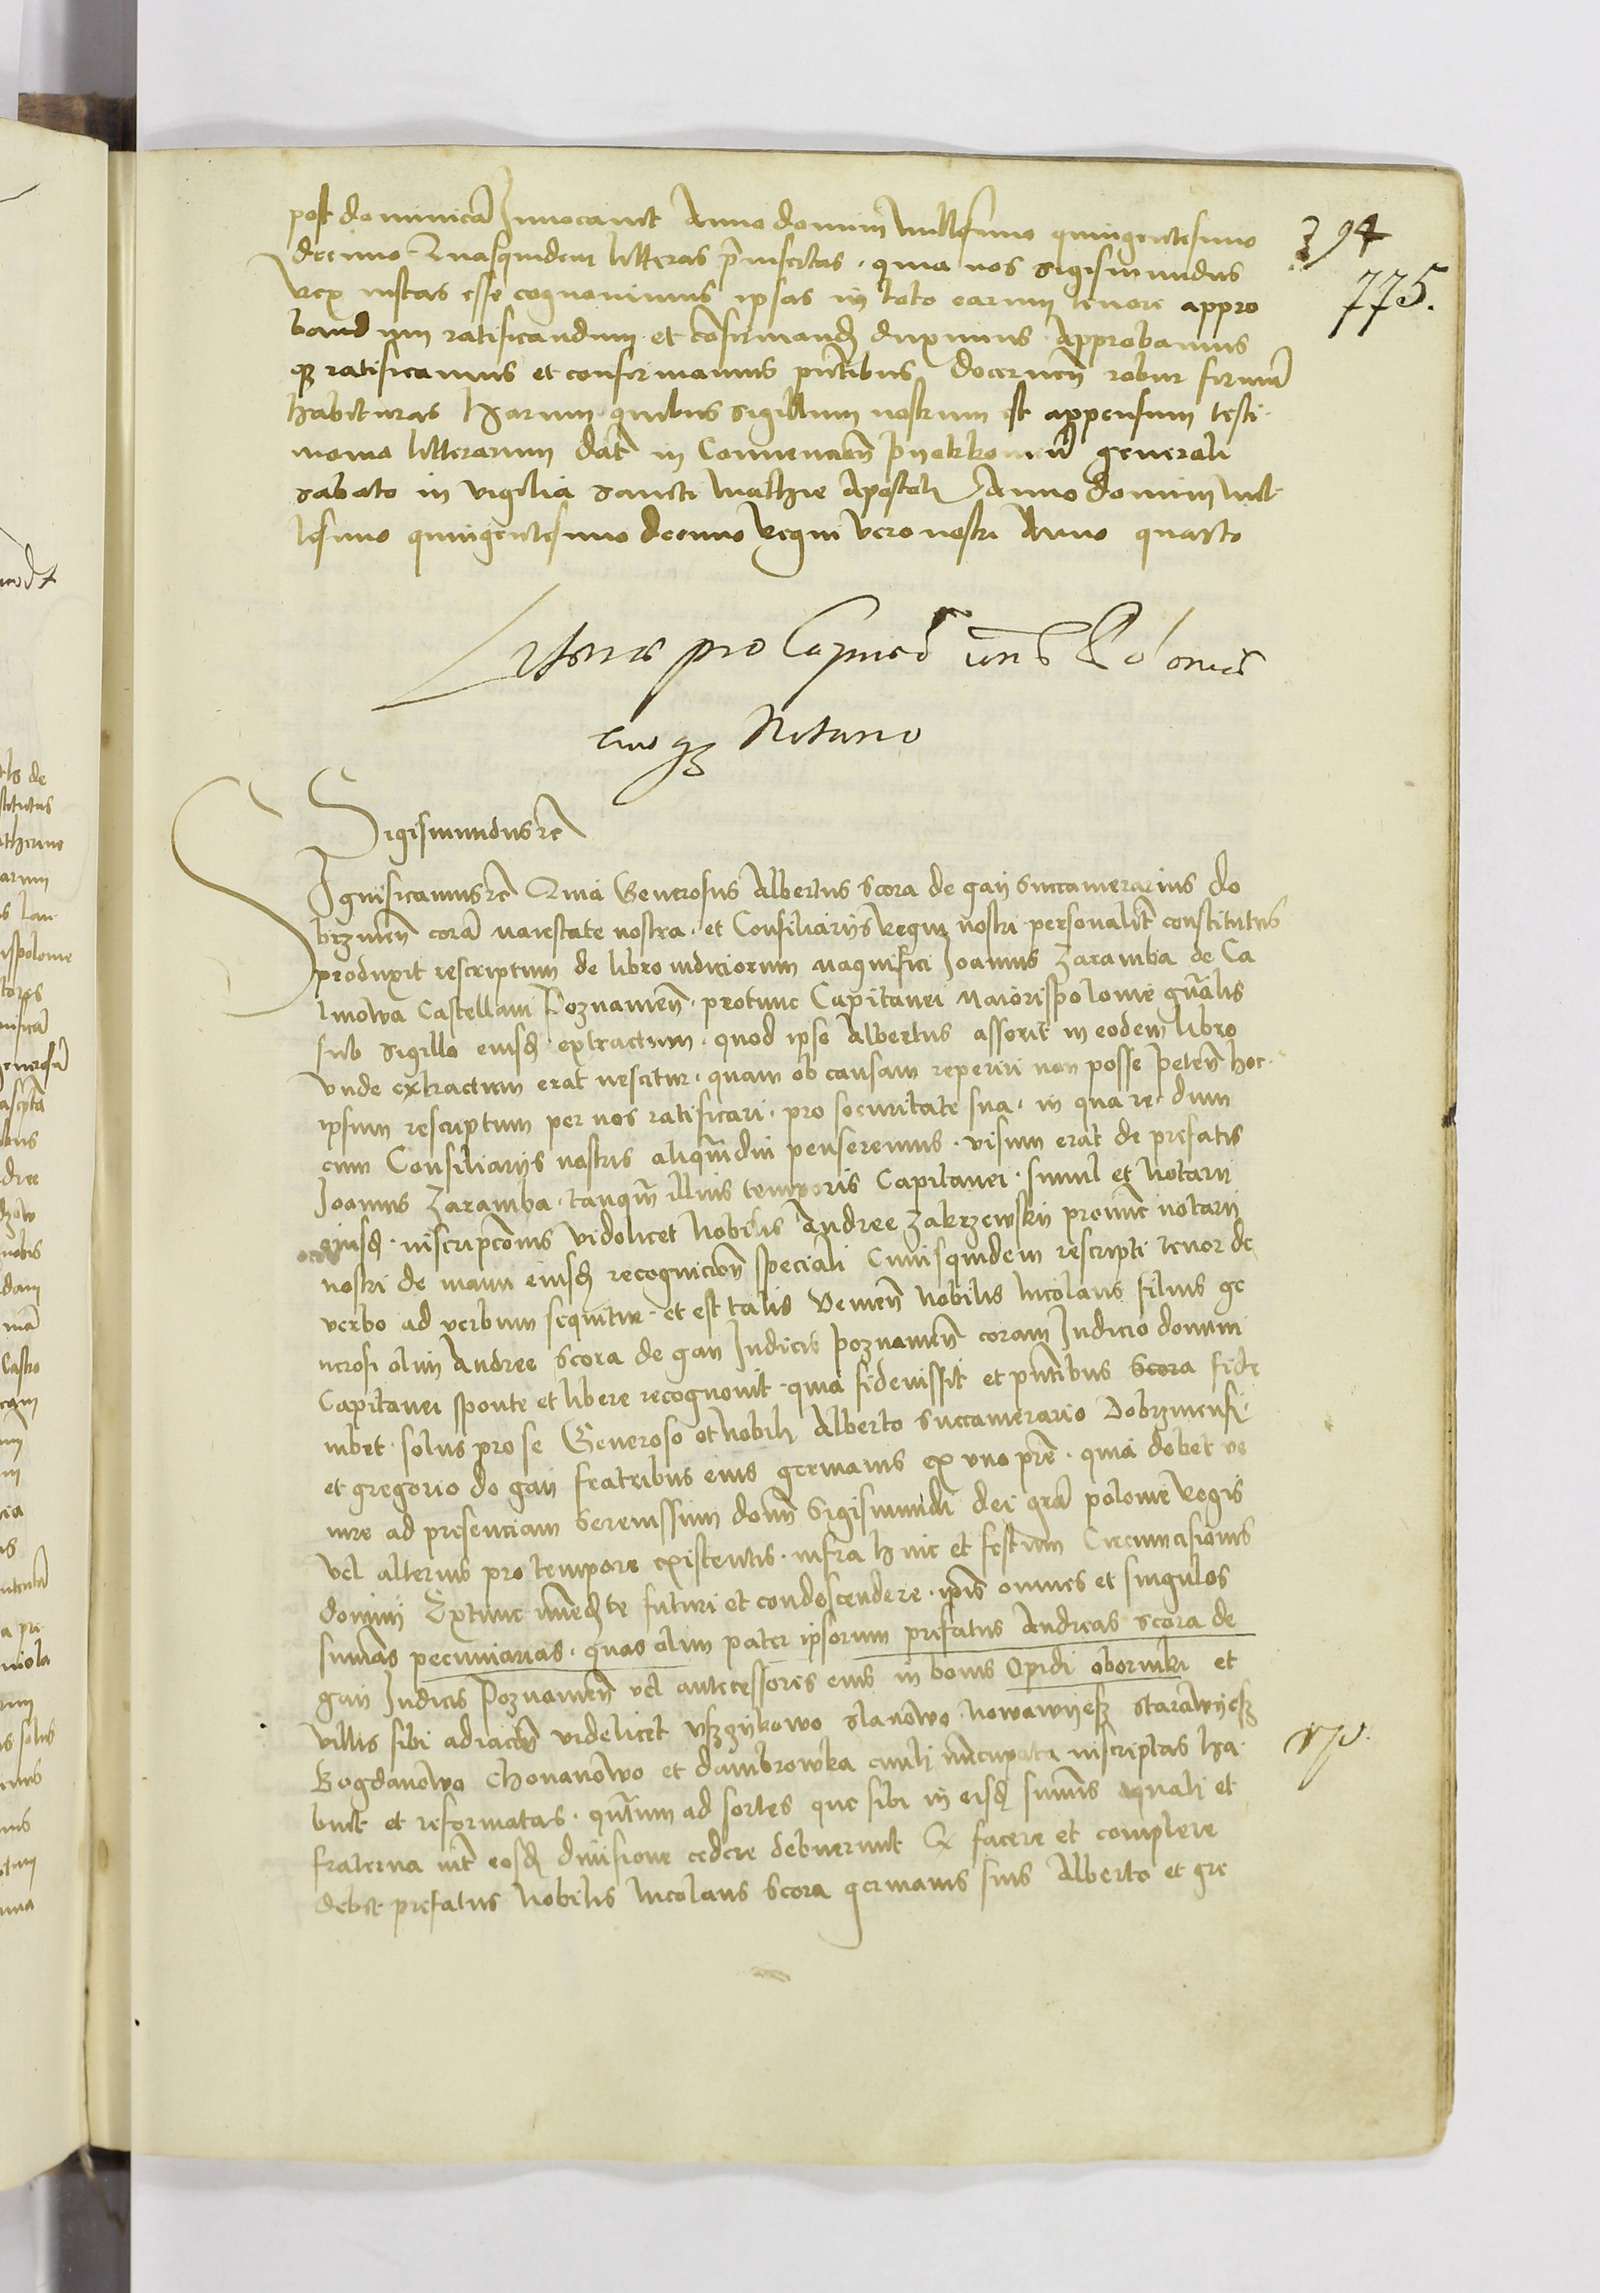 394
775.
post dominicā Invocavit Anno domini Millesimo quingentesimo
decimo Quasquidem litteras p̄insertas · quia nos Sigismundus
Rex iustas esse cognovimus ipsas in toto earum tenore appro
bandum ratificandum et cōfirmand duximus · Approbamus
q3 ratificamus et confirmamus pn̄tibus Decernen̄ robur firmū
habituras Harum quibus sigillum nostrum est appensum testi·
monio litterarum Dat̄ in Convencion̄ generali
Sabato in vigilia Sancti Mathie Apostoli Anno domini Mil
lesimo quingentesimo decimo Regni vero nostri Anno quarto
pro
Notario
Sigismundus rc̄
Significamus rc̄ Quia Generosus Albertus Scora de gay Succamerarius do
brzinen̄ corā Maiestate nostra · et Consiliariis Regni nostri personalit̄ constitutus
produxit rescriptum de libro iudiciorum Magnifici Joannis Zaramba de Ca
linowa Castellani Poznanien̄ · protunc Capitanei Maiorispolonie gn̄alis
sub sigillo eiusd extractum · quod ipse Albertus asserit in eodem libro
unde extractum erat nescitur · quam ob causam reperiri non posse peten̄ hoc·
ipsum rescriptum per nos ratificari · pro securitate sua · in qua re dum
cum Consiliariis nostris aliqm̄diu penseremus · visum erat de prefatis
Joannis Zaramba · tanqm̄ illius temporis Capitanei · simul et Notarii
eiusd · inscripcōnis videlicet Nobilis Andree Zakrzewskij pronūc notarii
nostri de manu eiusd recognicion̄ speciali Cuiusquidem rescripti tenor de
verbo ad verbum sequitur · et est talis Venien̄ Nobilis Nicolaus filius ge
nerosi olim Andree Scora de gay Judicis Poznanien̄ coram Judicio domini
Capitanei sponte et libere recognovit · quia fideiussit et pn̄tibus Scora fide
iubet · solus pro se Generoso et Nobili Alberto Succamerario Dobrzinensi·
et gregorio de gay fratribus eius germanis ex uno pr̄e · quia debet ve
nire ad presenciam Serenissimi domī Sigismundi dei gr̄a polonie Regis
vel alterius pro tempore existentis · infra hinc et festum Circumcisionis
domini Extunc īmed̄te futuri et condescendere · ipis omnes et singulos
sum̄as pecuniarias · quas olim pater ipsorum prefatus Andreas Scora de
gay Judicis Poznanien̄ vel antecessores eius in bonis Opidi oborniki et
villis sibi adiacen̄ videlicet Uszczykowo Slanowo Nowawyesz Starawyesz
Bogdanowo Chovanowo et dambrowka inscriptas ha·
buit et reformatas · qn̄tum ad sortes que sibi in eisd sum̄is equali et
fraterna int̄ eosd divisione cedere debuerunt Q facere et complere
debet prefatus Nobilis Nicolaus Scora germanis suis Alberto et gre